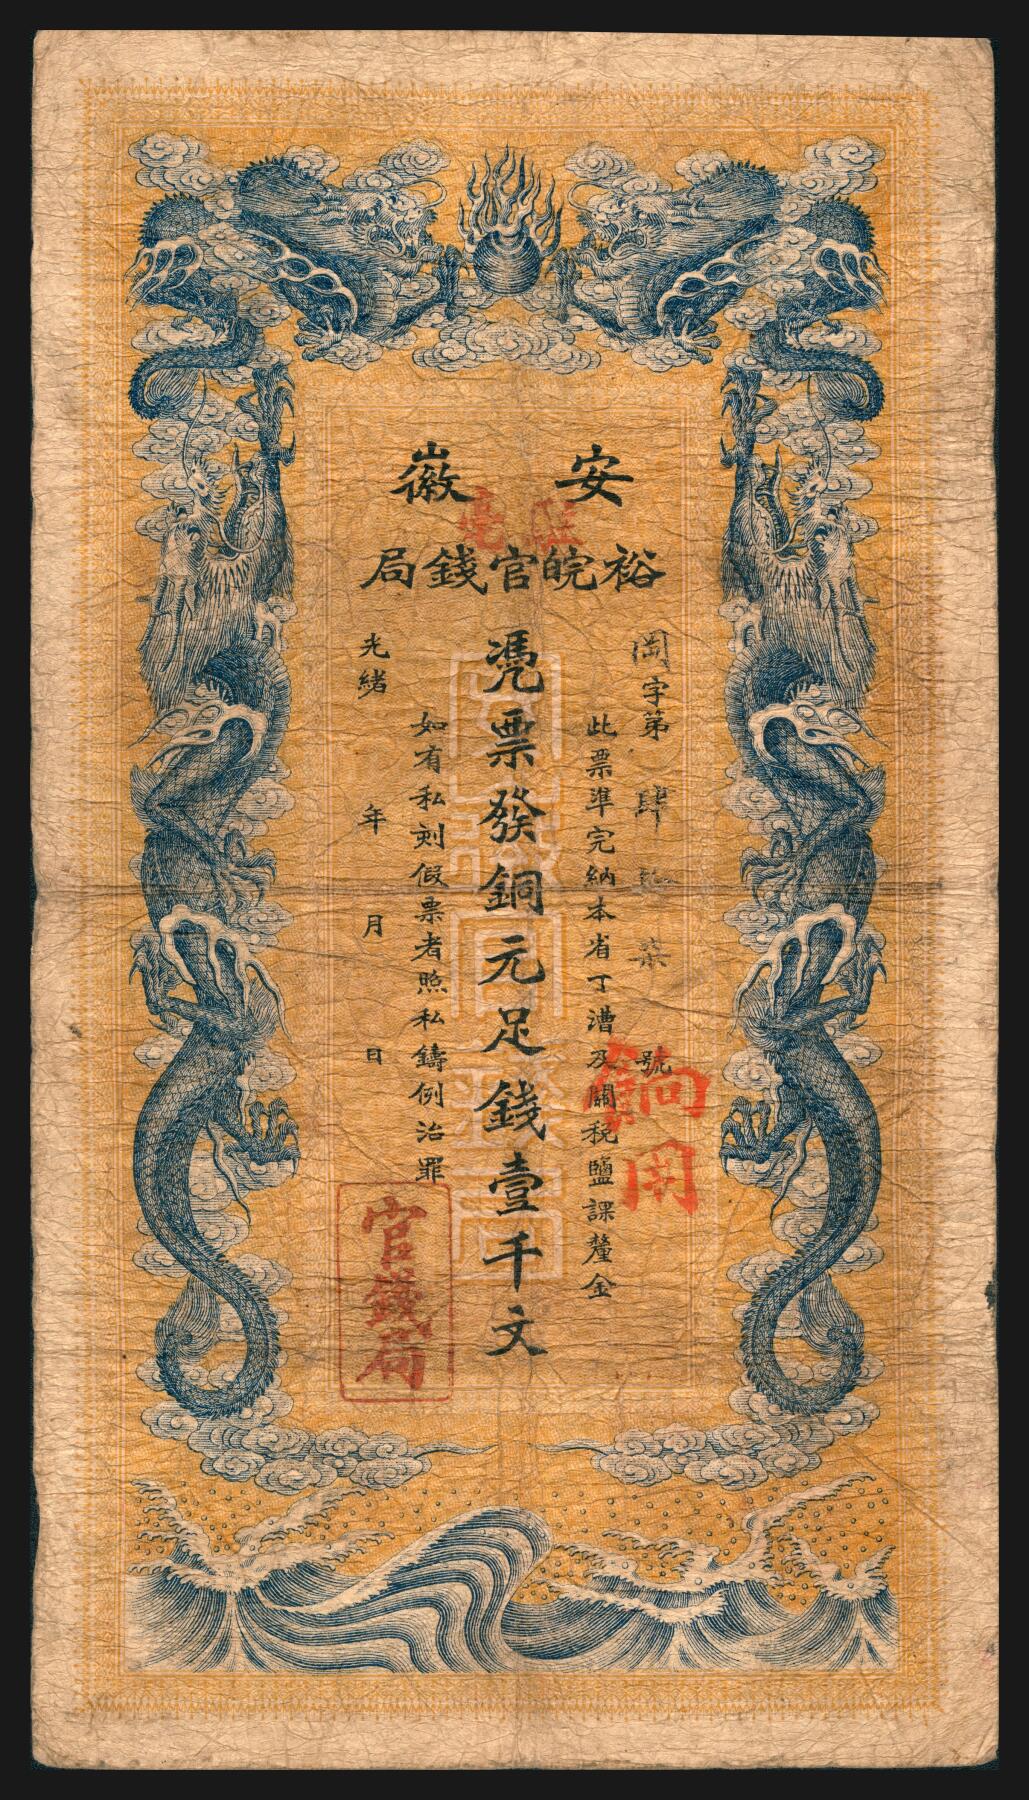 安徽
裕皖官錢局
岡字第肆拾柒號
此票準完納本省丁漕及關稅鹽課釐金
憑票發銅元足錢壹千文
如有私刻假票者照私鑄例治罪
光緒 年 月 日
官錢局